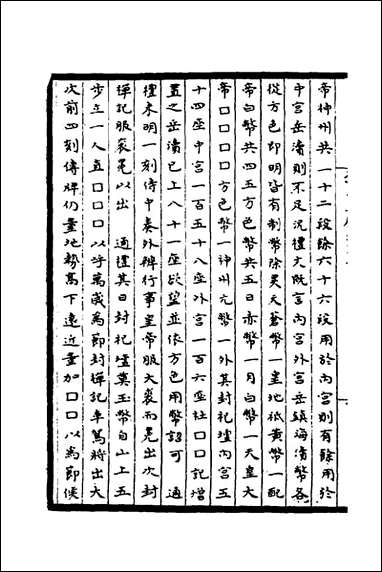 帝神州共一十二段餘六十六段用於內宮則有餘用於
中宮岳瀆則不足況禮文旣言內宮外宮岳鎮海瀆幣各
從方色即明皆有制幣除昊天蒼幣一皇地祇黃幣一配
帝白幣共四五方色幣共五日赤幣一月白幣一天皇大
帝口口口口方色幣一神州元幣一外其封祀壇內宮五
十四座中宮一百五十八座外宮一百六座社口口記增
置之岳瀆已上八十一座欲望並依方色用幣詔可　適
禮未明一刻侍中奏外辦行事皇帝服大裘而冕出次封
禪記服袞冕以出　適禮其日封祀壇奠玉幣自山上五
步立一人直口口口以呼萬歲為節封禪記車駕將出大
次前四刻傳牌仍量地勢高下遠近量加口口以為節候